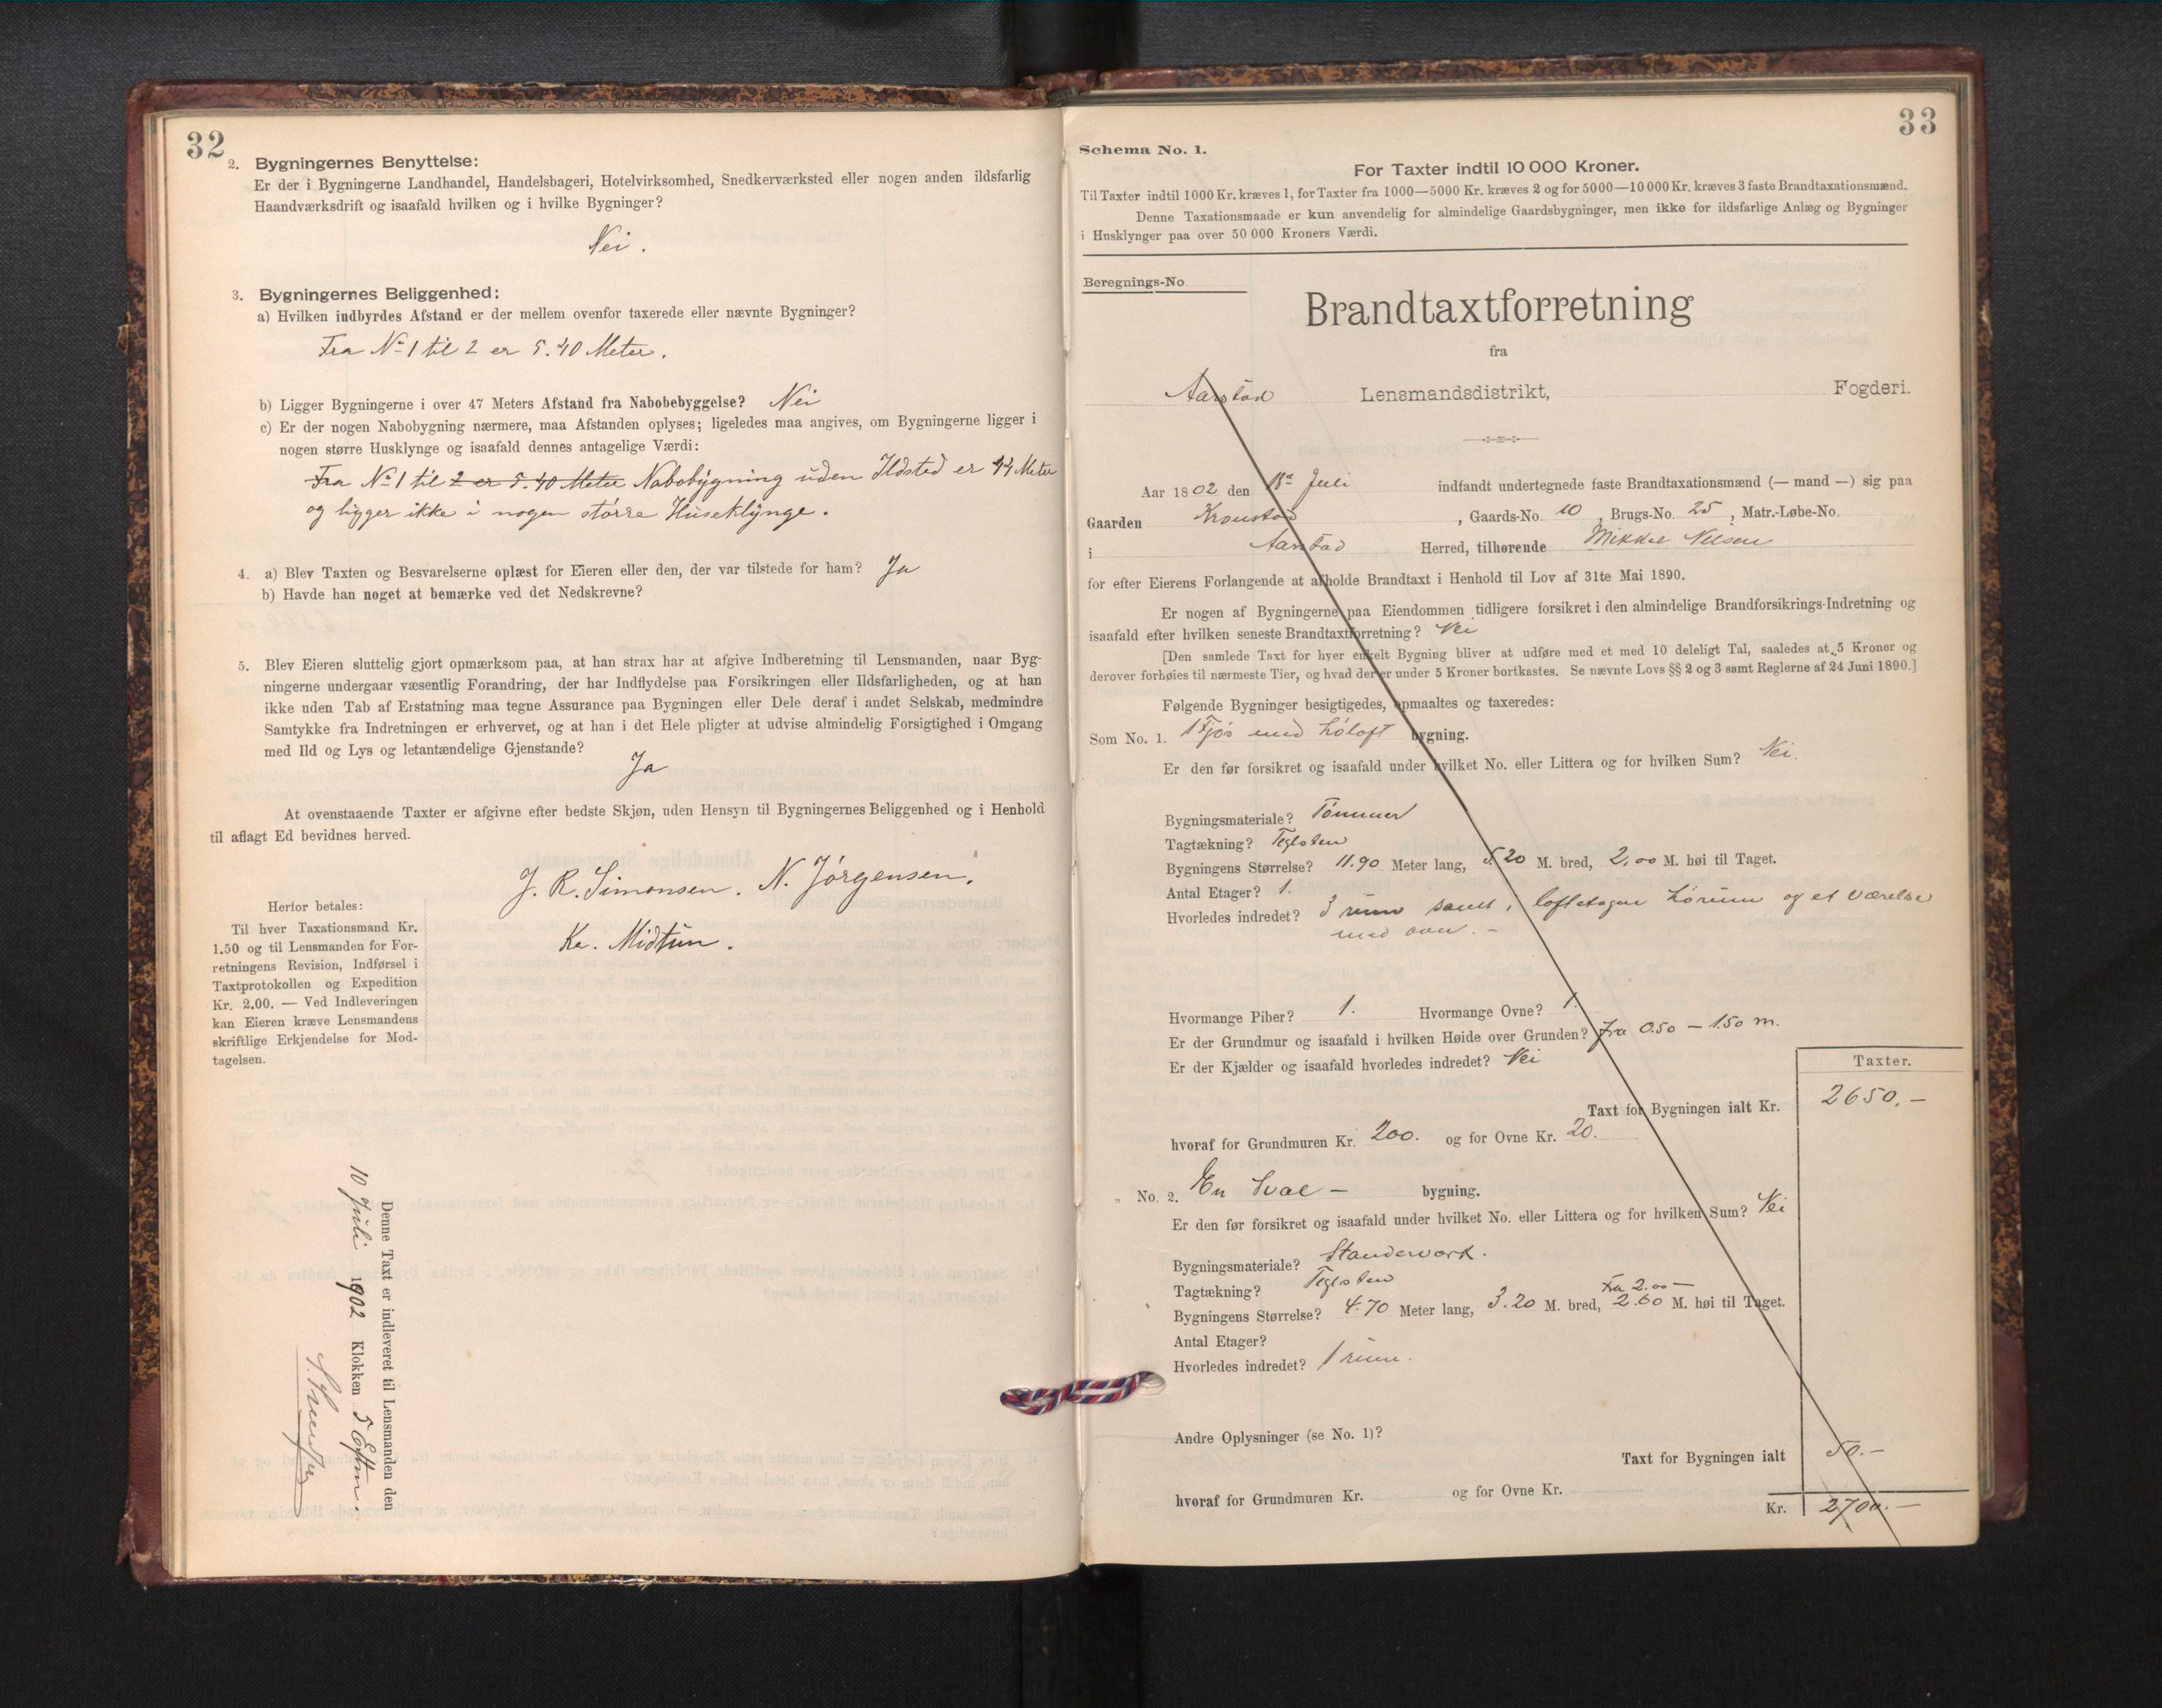 32
2. Bygningernes Benyttelse:
Er der i Bygningerne Landhandel, Handelsbageri, Hotelvirksomhed, Snedkerværksted eller nogen anden ildsfarlig
Haandværksdrift og isaafald hvilken og i hvilke Bygninger?
Nei.
3. Bygningernes Beliggenhed:
a) Hvilken indbyrdes Afstand er der mellem ovenfor taxerede eller nævnte Bygninger?
Fra No 1 til 2 er 5.40 Meter.
b) Ligger Bygningerne i over 47 Meters Afstand fra Nabobebyggelse? Nei
c) Er der nogen Nabobygning nærmere, maa Afstanden oplyses; ligeledes maa angives, om Bygningerne ligger i
nogen større Husklynge og isaafald dennes antagelige Værdi:
Fra No 1 til 2 er 5.40 Meter Nabobygning uden Ildsted er 44 Meter
og ligger ikke i nogen större Huseklynge.
4. a) Blev Taxten og Besvarelserne oplæst for Eieren eller den, der var tilstede for ham? Ja
b) Havde han noget at bemærke ved det Nedskrevne?
5. Blev Eieren sluttelig gjort opmærksom paa, at han strax har at afgive Indberetning til Lensmanden, naar Byg-
ningerne undergaar væsentlig Forandring, der har Indflydelse paa Forsikringen eller Ildsfarligheden, og at han
ikke uden Tab af Erstatning maa tegne Assurance paa Bygningen eller Dele deraf i andet Selskab, medmindre
Samtykke fra Indretningen er erhvervet, og at han i det Hele pligter at udvise almindelig Forsigtighed i Omgang
med Ild og Lys og letantændelige Gjenstande?
Ja
At ovenstaaende Taxter er afgivne efter bedste Skjøn, uden Hensyn til Bygningernes Beliggenhed og i Henhold
til aflagt Ed bevidnes herved.
J. R. Simonsen. N. Jörgensen.
Ka. Midtun.
Herfor betales:
Til hver Taxationsmand Kr.
1.50 og til Lensmanden for For-
retningens Revision, Indførsel i
Taxtprotokollen og Expedition
Kr. 2.00. — Ved Indleveringen
kan Eieren kræve Lensmandens
skriftlige Erkjendelse for Mod-
tagelsen.
Denne Taxt er indleveret til Lensmanden den
10 Juli 1902 Klokken 5 Eftm.
33
Schema No. 1.
For Taxter indtil 10 000 Kroner.
Til Taxter indtil 1000 Kr. kræves 1, for Taxter fra 1000—5000 Kr. kræves 2 og for 5000—10 000 Kr. kræves 3 faste Brandtaxationsmænd.
Denne Taxationsmaade er kun anvendelig for almindelige Gaardsbygninger, men ikke for ildsfarlige Anlæg og Bygninger
i Husklynger paa over 50 000 Kroners Værdi.
Beregnings-No.
Brandtaxtforretning
fra
Aarstad Lensmandsdistrikt, Fogderi.
Aar 1802 den 18de Juli indfandt undertegnede faste Brandtaxationsmænd (— mand —) sig paa
Gaarden Kronstad, Gaards-No. 10, Brugs-No. 25, Matr.-Løbe-No.
i Aarstad Herred, tilhørende Mikkel Nilsen
for efter Eierens Forlangende at afholde Brandtaxt i Henhold til Lov af 31te Mai 1890.
Er nogen af Bygningerne paa Eiendommen tidligere forsikret i den almindelige Brandforsikrings-Indretning og
isaafald efter hvilken seneste Brandtaxtforretning? Nei
[Den samlede Taxt for hver enkelt Bygning bliver at udføre med et med 10 deleligt Tal, saaledes at 5 Kroner og
derover forhøies til nærmeste Tier, og hvad der er under 5 Kroner bortkastes. Se nævnte Lovs §§ 2 og 3 samt Reglerne af 24 Juni 1890.]
Følgende Bygninger besigtigedes, opmaaltes og taxeredes:
Som No. 1. 1 Fjös med Höloft bygning.
Er den før forsikret og isaafald under hvilket No. eller Littera og for hvilken Sum? Nei.
Bygningsmateriale? Tömmer
Tagtækning? Teglsten
Bygningens Størrelse? 11.90 Meter lang, 5.20 M. bred, 2.00 M. høi til Taget.
Antal Etager? 1.
Hvorledes indredet? 3 rum samt i loftetagen hörum og et Værelse
med ovn. –
Hvormange Piber? 1. Hvormange Ovne? 1.
Er der Grundmur og isaafald i hvilken Høide over Grunden? fra 0.50 – 1.50 m.
Er der Kjælder og isaafald hvorledes indredet? Nei
Taxter.
Taxt for Bygningen ialt Kr. 2650.–
hvoraf for Grundmuren Kr. 200. og for Ovne Kr. 20.
„ No. 2. En Sval – bygning.
Er den før forsikret og isaafald under hvilket No. eller Littera og for hvilken Sum? Nei
Bygningsmateriale? Standerverk.
Tagtækning? Teglsten
Fra 2.00 –
Bygningens Størrelse? 4.70 Meter lang, 3.20 M. bred, 2.60 M. høi til Taget.
Antal Etager?
Hvorledes indredet? 1 rum.
Andre Oplysninger (se No. 1)?
Taxt for Bygningen ialt 50.–
hvoraf for Grundmuren Kr. og for Ovne Kr.
Kr. 2700.–